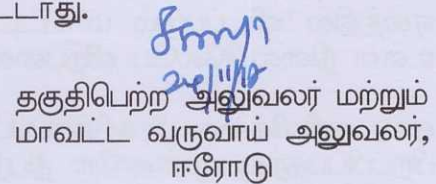 டாது.
தகுதிபெற்ற அலுவலர் மற்றும்
மாவட்ட வருவாய் அலுவலர்,
ஈரோடு